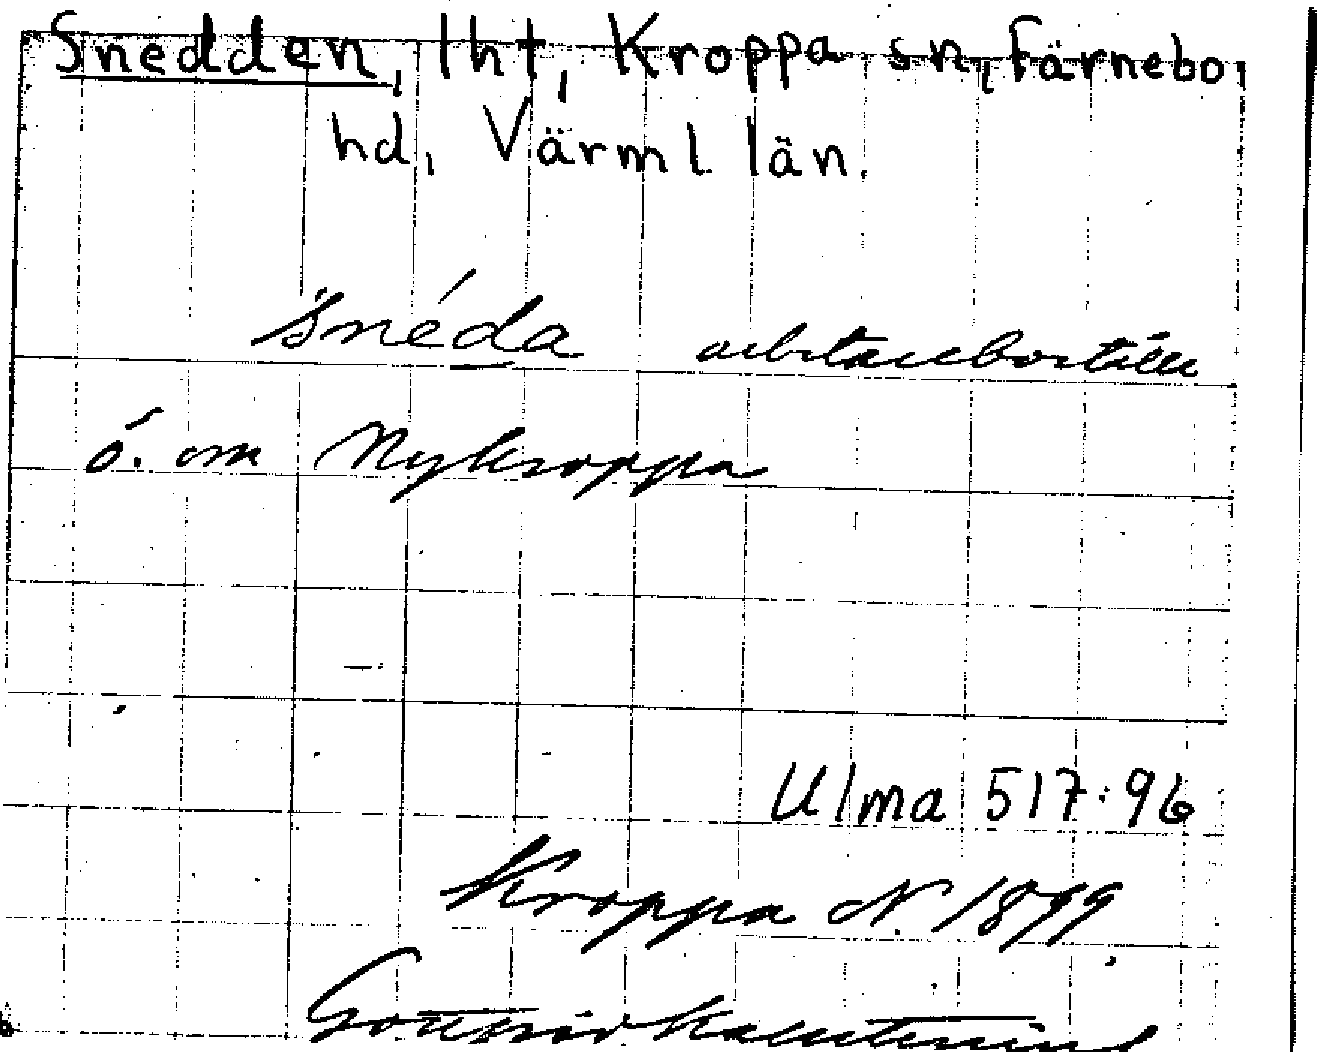 Snedden, lht, Kroppa sn, Färnebo
hd, Värml. län.
snéda arbetareboställer
ö. om Nykroppa
Ulma 517:96
Kroppa N. 1899
Gottfrid Kallstenius